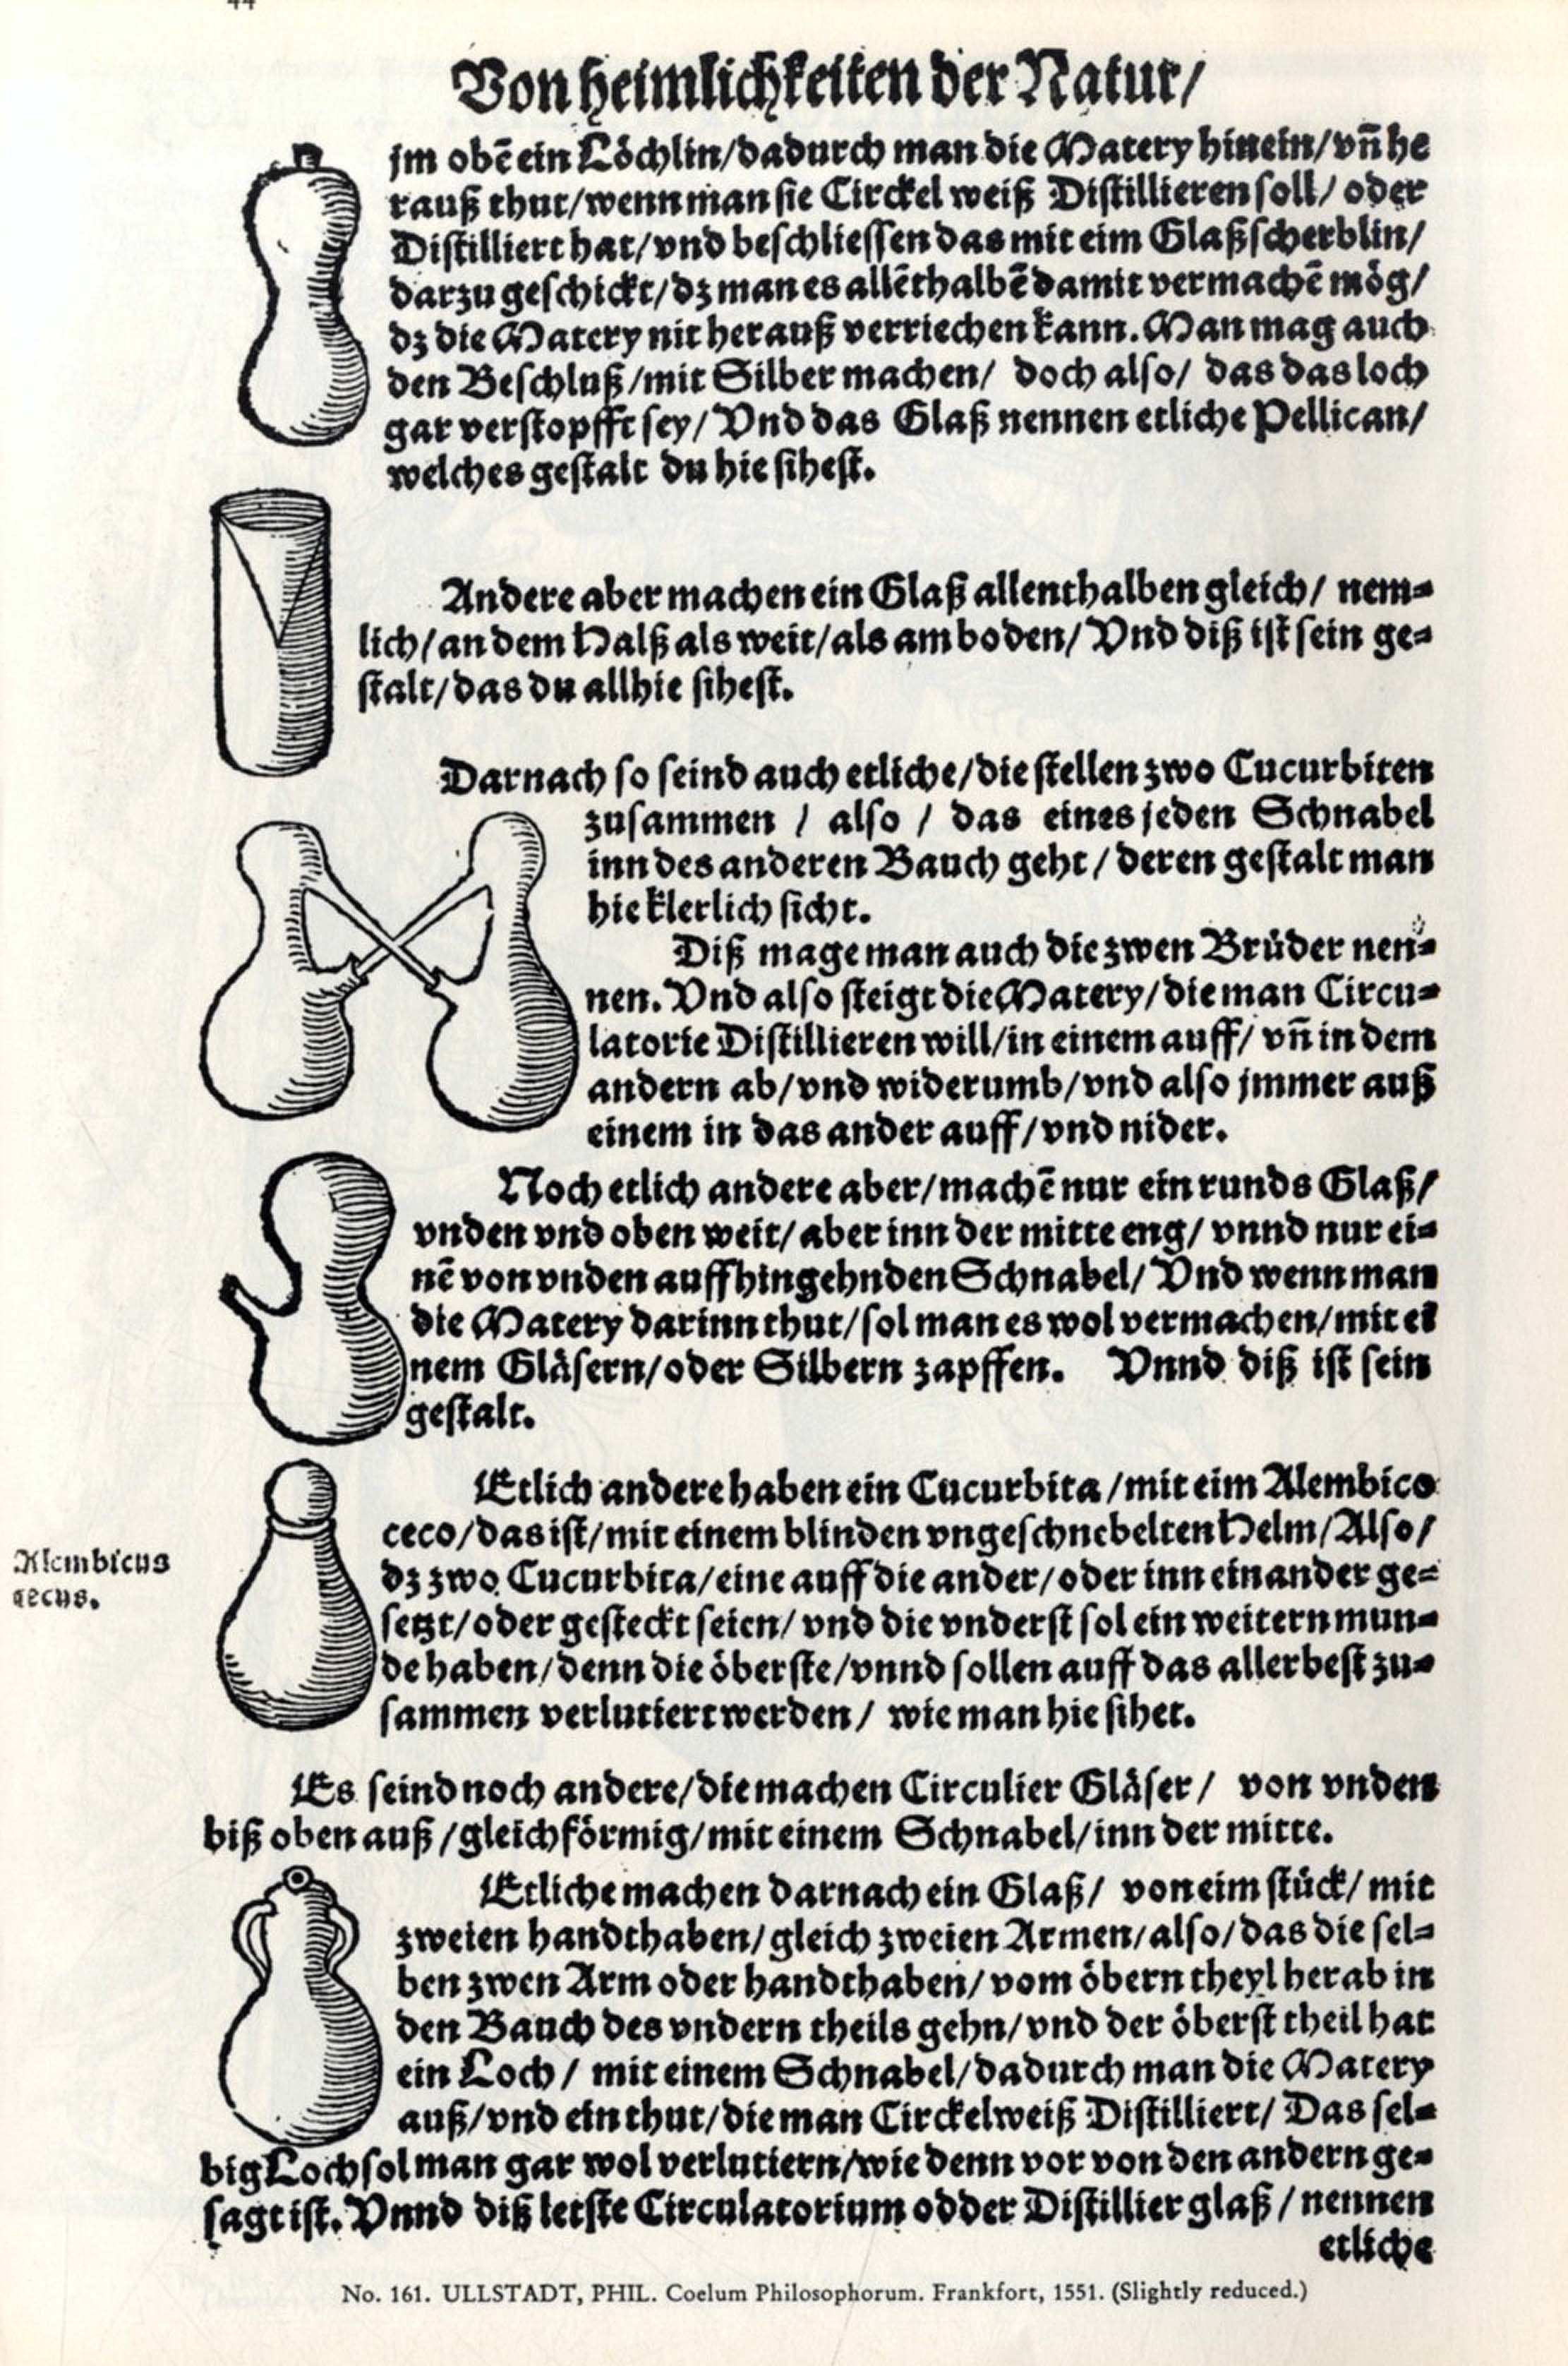 44
Von heimlichkeiten der Natur/
jm obē ein Löchlin/dadurch man die Matery hinein/vñ he
rauß thut/wenn man sie Circkel weiß Distillieren soll/ oder
Distilliert hat/vnd beschliessen das mit eim Glaßscherblin/
darzu geschickt/dz man es allēthalbē damit vermachē mög/
dz die Matery nit herauß verriechen kann. Man mag auch
den Beschluß/mit Silber machen/ doch also/ das das loch
gar verstopfft sey/ Vnd das Glaß nennen etliche Pellican/
welches gestalt du hie sihest.
Andere aber machen ein Glaß allenthalben gleich/ nem-
lich/an dem Halß als weit/als am boden/ Vnd diß ist sein ge-
stalt/das du allhie sihest.
Darnach so seind auch etliche/die stellen zwo Cucurbiten
zusammen / also / das eines jeden Schnabel
inn des anderen Bauch geht / deren gestalt man
hie klerlich sicht.
Diß mage man auch die zwen Brüder nen-
nen. Vnd also steigt die Matery/die man Circu-
latorie Distillieren will/in einem auff/ vñ in dem
andern ab/vnd widerumb/vnd also jmmer auß
einem in das ander auff/vnd nider.
Noch etlich andere aber/machē nur ein runds Glaß/
vnden vnd oben weit/ aber inn der mitte eng/ vnnd nur ei-
nē von vnden auffhin gehnden Schnabel/ Vnd wenn man
die Matery darinn thut/sol man es wol vermachen/mit ei
nem Gläsern/oder Silbern zapffen. Vnnd diß ist sein
gestalt.
Etlich andere haben ein Cucurbita /mit eim Alembico
ceco/das ist/mit einem blinden vngeschnebelten Helm/Also/
dz zwo Cucurbita/eine auff die ander/oder inn einander ge-
setzt/oder gesteckt seien/ vnd die vnderst sol ein weitern mun-
de haben/denn die öberste/vnnd sollen auff das allerbest zu-
sammen verlutiert werden/ wie man hie sihet.
Alembicus
cecus.
Es seind noch andere/die machen Circulier Gläser/ von vnden
biß oben auß /gleichförmig/mit einem Schnabel/inn der mitte.
Etliche machen darnach ein Glaß/ von eim stück/ mit
zweien handthaben/gleich zweien Armen/also/das die sel-
ben zwen Arm oder handthaben/ vom öbern theyl herab in
den Bauch des vndern theils gehn/vnd der öberst theil hat
ein Loch / mit einem Schnabel/dadurch man die Matery
auß/vnd ein thut/die man Circkelweiß Distilliert/ Das sel-
big Loch sol man gar wol verlutiern/wie denn vor von den andern ge-
sagt ist. Vnnd diß letste Circulatorium odder Distillier glaß / nennen
etliche
No. 161. ULLSTADT, PHIL. Coelum Philosophorum. Frankfort, 1551. (Slightly reduced.)